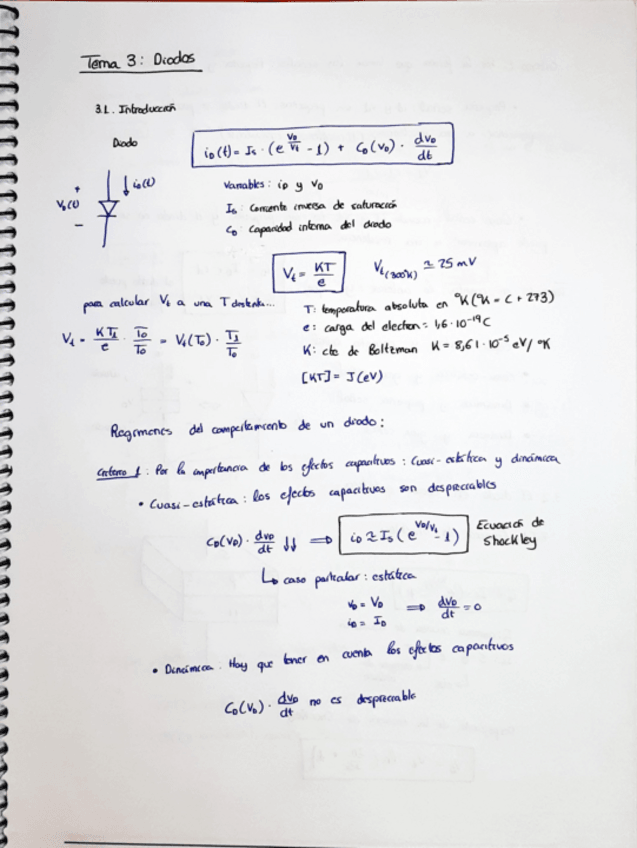 Tema 3: Diodos
3.1. Introducción
Diodo
i_D(t) = I_s · (e^(V_D/V_t) - 1) + C_D(v_D) · dv_D/dt
+
V_D(t)
-
i_D(t)
Variables: i_D y v_D
I_s: Corriente inversa de saturación
C_D: Capacidad interna del diodo
V_t = KT/e
V_t(300K) ≃ 25 mV
para calcular V_t a una T distinta...
V_t = KT_1/e · T_0/T_0 = V_t(T_0) · T_1/T_0
T: temperatura absoluta en °K (°K = C + 273)
e: carga del electron = 1,6 · 10^-19 C
K: cte de Boltzman K = 8,61 · 10^-5 eV/°K
[KT] = J (eV)
Regimenes del comportamiento de un diodo:
Criterio 1: Por la importancia de los efectos capacitivos: Cuasi-estática y dinámica
• Cuasi-estática: los efectos capacitivos son despreciables
C_D(v_D) · dv_D/dt ↓↓ ⇒ i_D ≃ I_s (e^(V_D/V_t) - 1)
Ecuación de
Shockley
↳ caso particular: estática
v_D = V_D
i_D = I_D
⇒ dv_D/dt = 0
• Dinámica: Hay que tener en cuenta los efectos capacitivos
C_D(v_D) · dv_D/dt no es despreciable